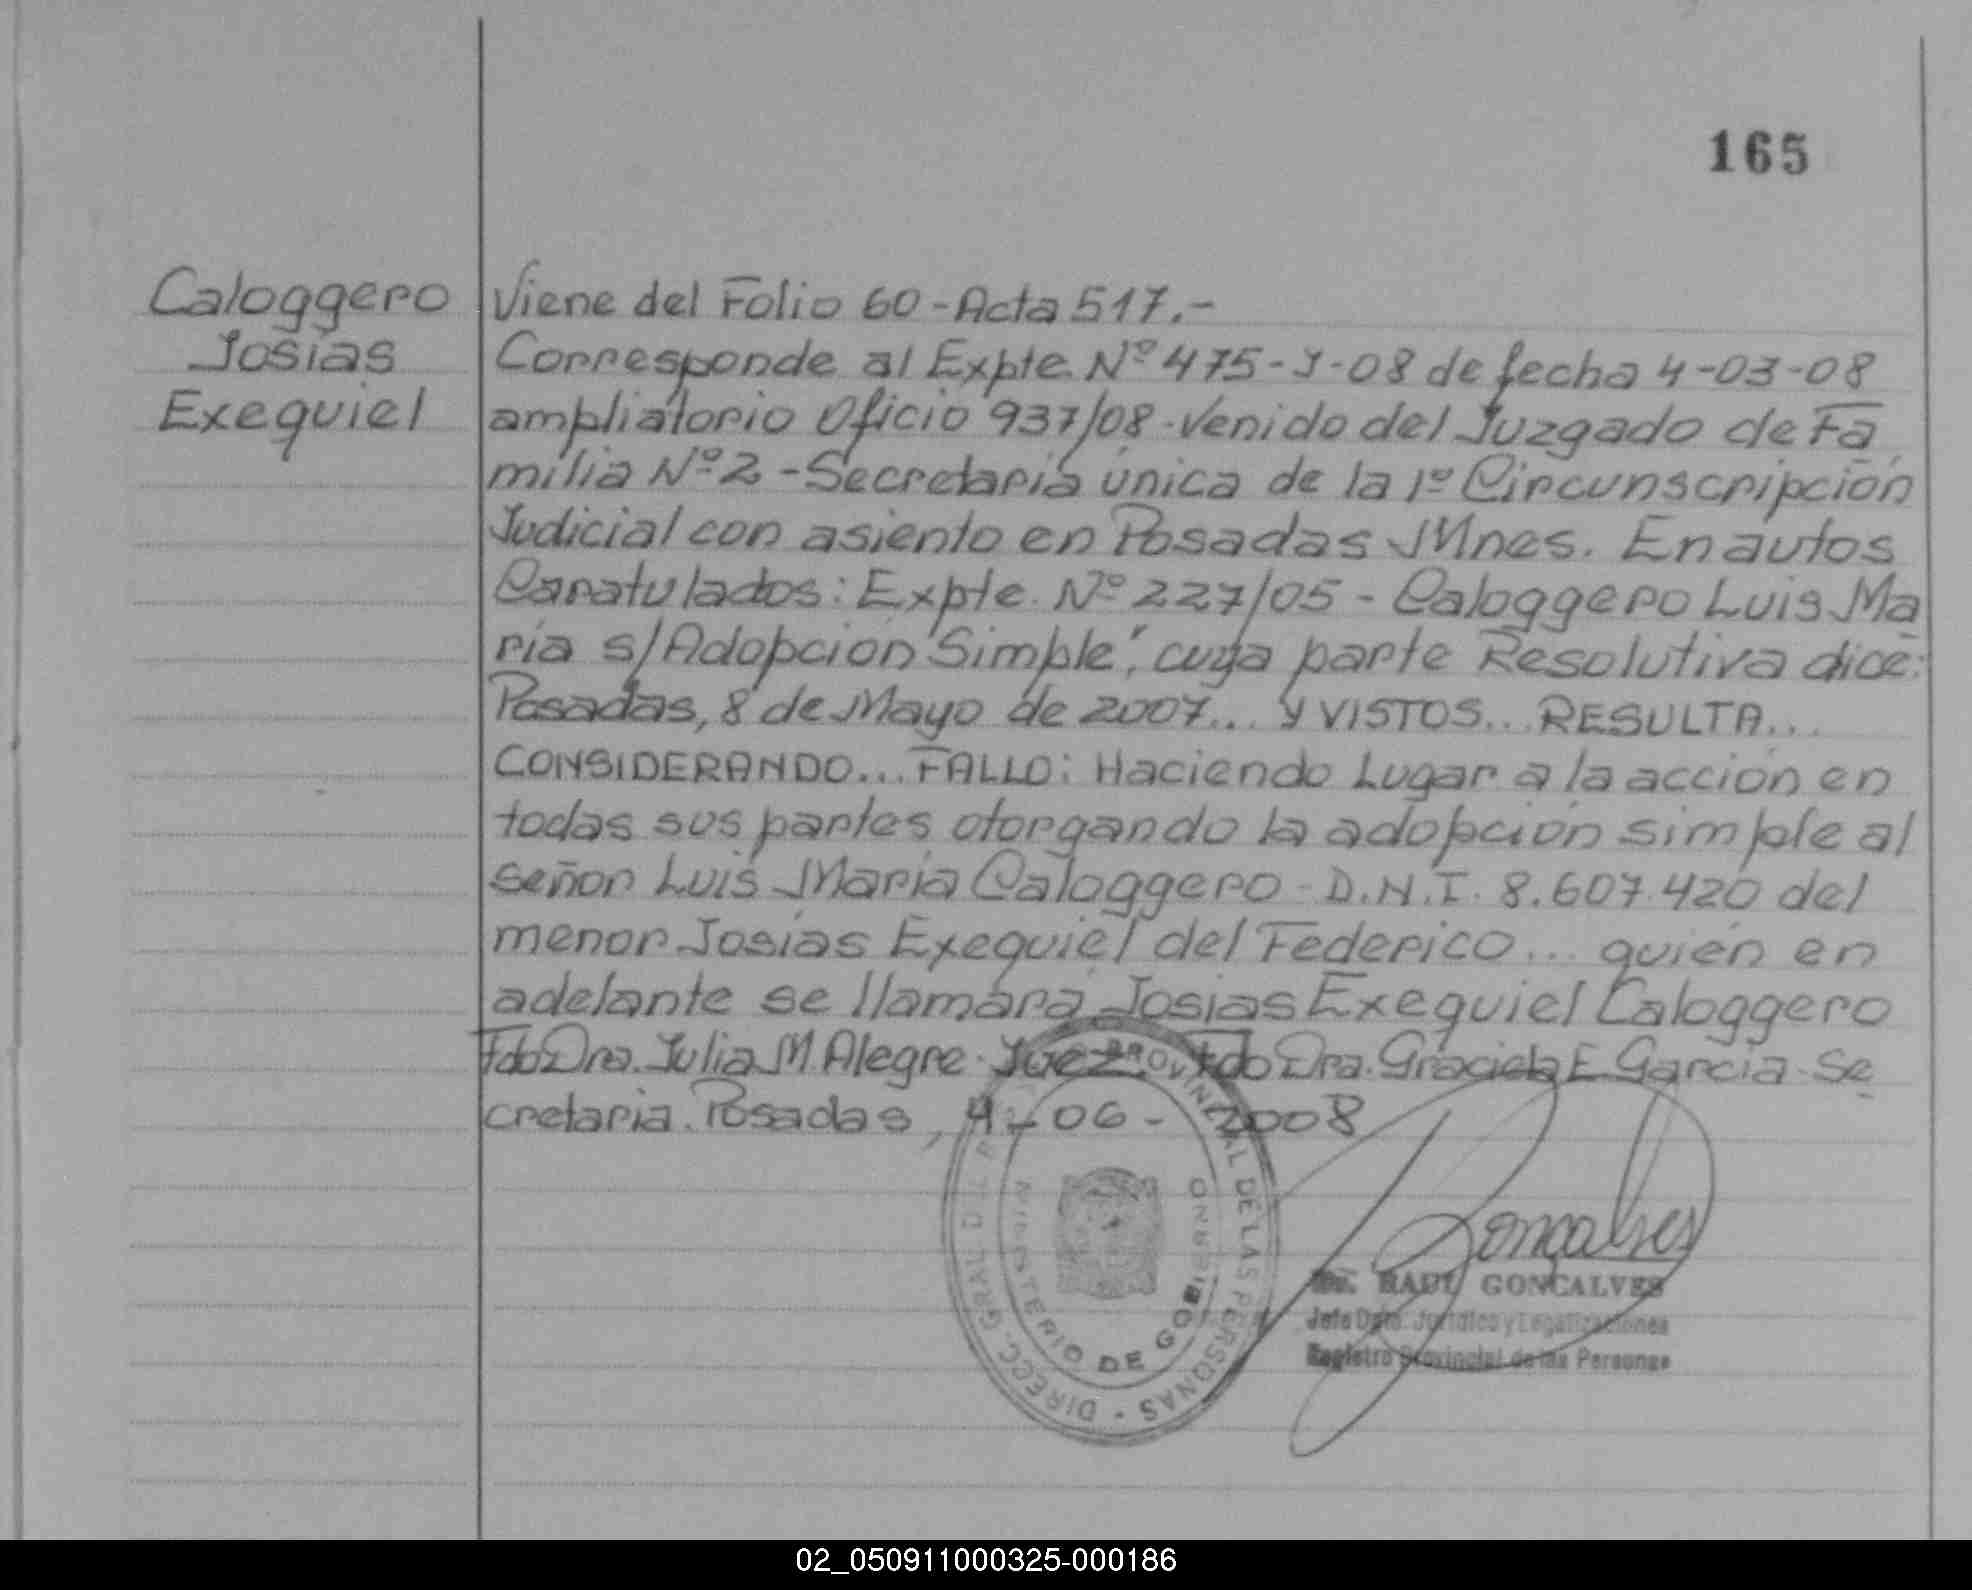 165
Caloggero
Josías
Exequiel
Viene del Folio 60 - Acta 517.-
Corresponde al Expte. Nº 475-J-08 de fecha 4-03-08
ampliatorio Oficio 937/08 - Venido del Juzgado de Fa
milia Nº 2 - Secretaría única de la 1º Circunscripción
Judicial con asiento en Posadas Mnes. En autos
Caratulados: Expte. Nº 227/05 - Caloggero Luis Ma
ría s/Adopción Simple", cuya parte Resolutiva dice:
Posadas, 8 de Mayo de 2007... Y VISTOS... RESULTA...
CONSIDERANDO... FALLO: Haciendo Lugar a la acción en
todas sus partes otorgando la adopción simple al
señor Luis María Caloggero - D.N.I. 8.607.420 del
menor Josías Exequiel del Federico... quién en
adelante se llamará Josías Exequiel Caloggero
Fdo Dra. Julia M. Alegre - Juez. Fdo Dra. Graciela E. García - Se
cretaria. Posadas, 4-06-2008
DIRECC. GRAL. DEL PROVINCIAL DE LAS PERSONAS
MINISTERIO DE GOBIERNO
Goncalves
Dr. RAUL GONÇALVES
Jefe Dpto. Jurídico y Legalizaciones
Registro Provincial de las Personas
02_050911000325-000186